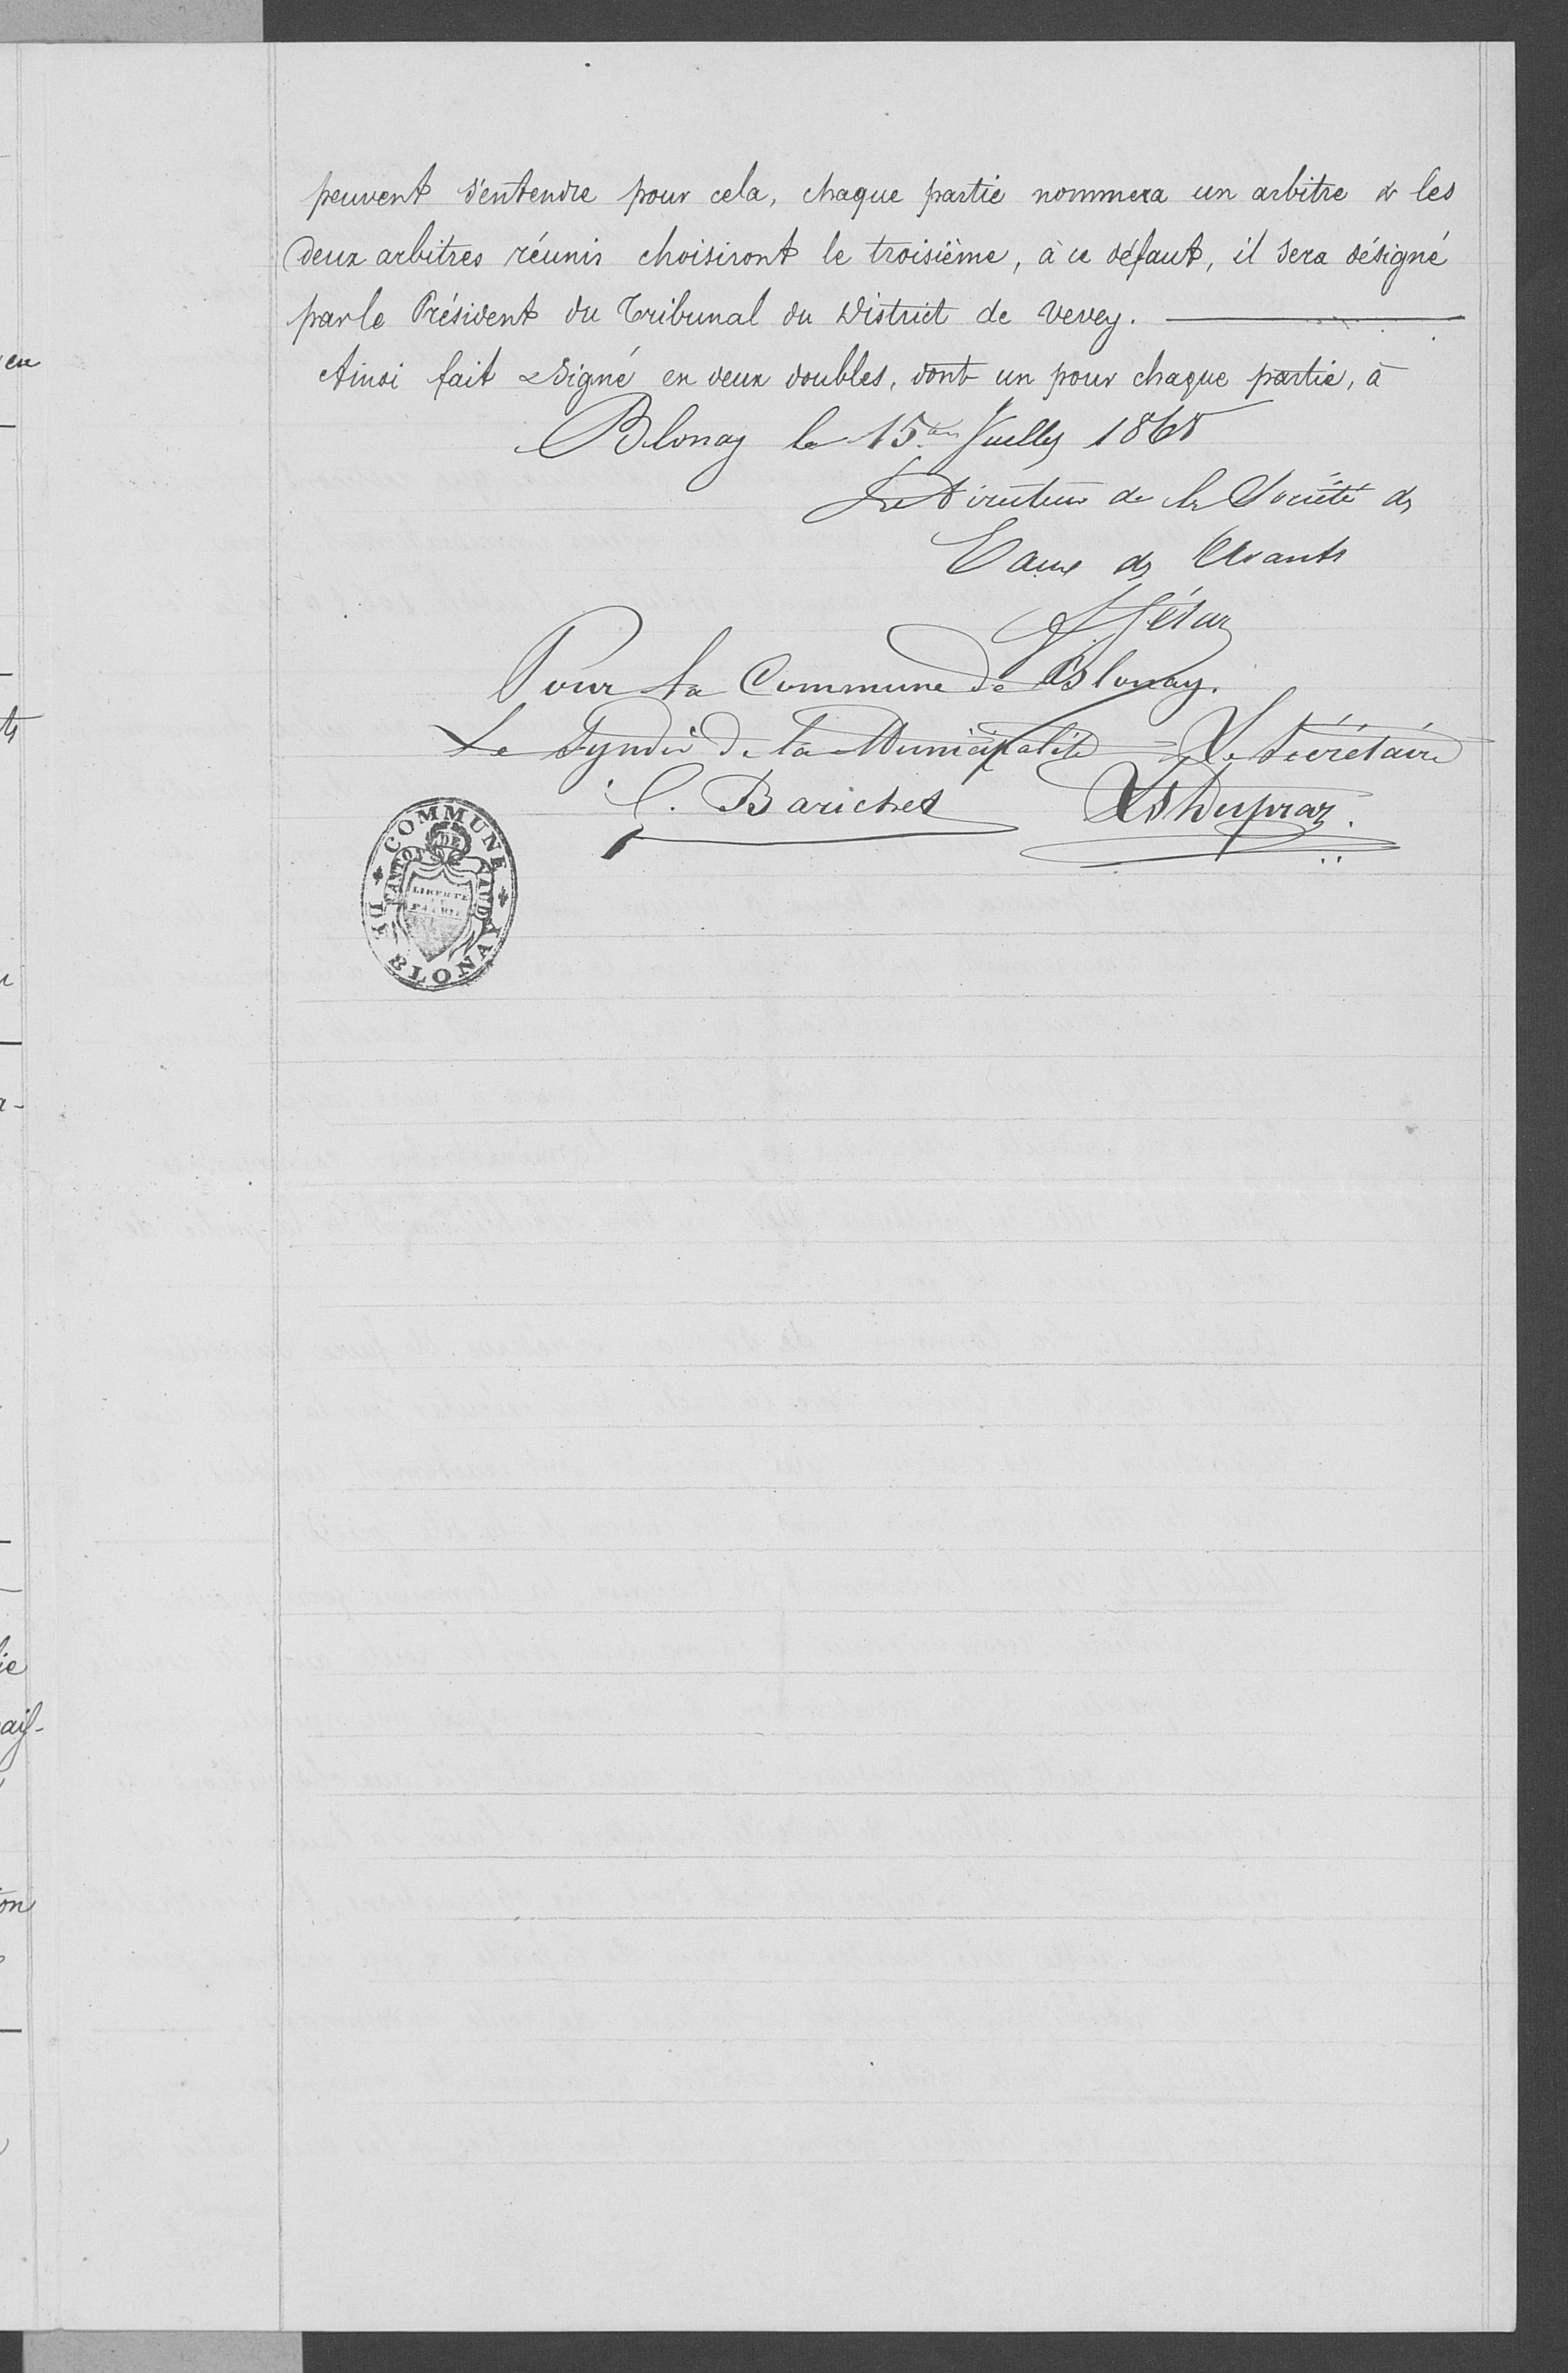 peuvent s'entendre pour cela, chaque partie nommera un arbitre & les
deux arbitres réunis choisiront le troisième, à ce défaut, il sera désigné
par le Président du Tribunal du District de Vevey.
Ainsi fait & Signé en deux doubles, dont un pour chaque partie, à
Blonay le 15 Juillet 1868
Le Directeur de la Société des
Eaux des Avants
Pour la Commune de Blonay.
Le Syndic de la Municipalité Le Secrétaire
Ls Dupraz.
COMMUNE DE BLONAY
CANTON DE VAUD
LIBERTÉ
ET
PATRIE
en
ts
a-
ie
ais-
on